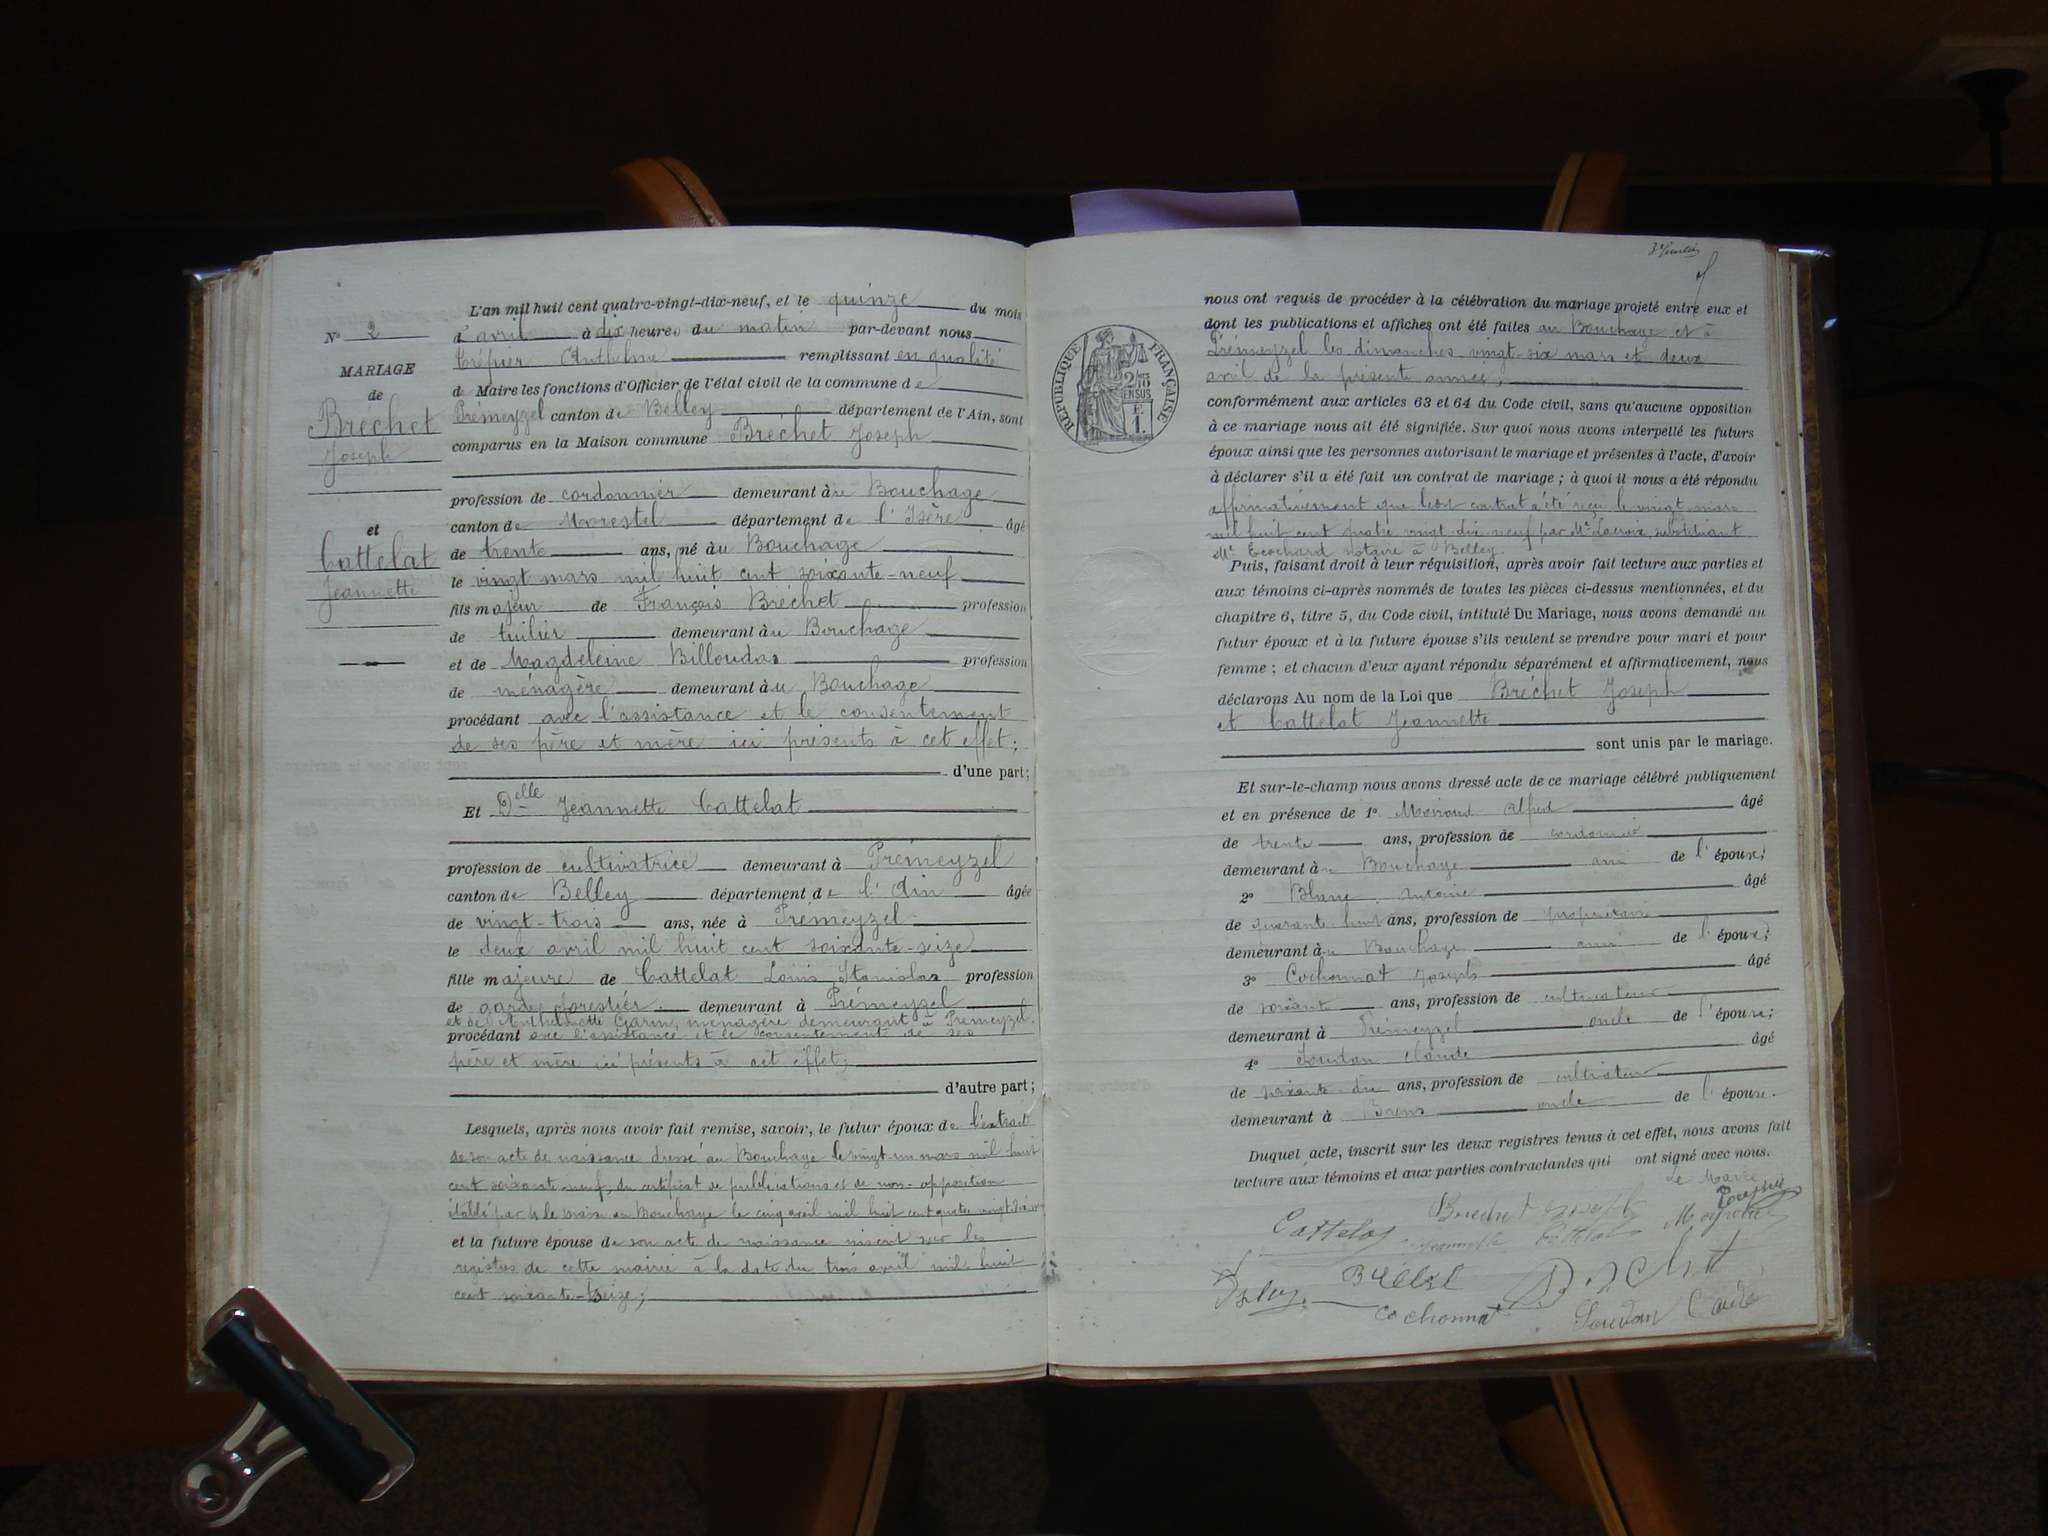 L'an mil huit cent quatre-vingt-dix-neuf, et le quinze du mois
d'avril à dix heures du matin par-devant nous
Anthelme remplissant en qualité
de Maire les fonctions d'Officier de l'état civil de la commune de
Prémeyzel canton de Belley département de l'Ain, sont
comparus en la Maison commune Bréchet Joseph
N° 2
MARIAGE
de
Bréchet
Joseph
et
Cattelat
Jeannette
profession de cordonnier demeurant à u Bouchage
canton de Morestel département de l'Isère âgé
de trente ans, né à u Bouchage
le vingt mars mil huit cent soixante-neuf
fils majeur de François Brechet profession
de tuilier demeurant à u Bouchage
et de Magdeleine Billoudas profession
de ménagère demeurant à u Bouchage
procédant avec l'assistance et le consentement
de ses père et mère ici présents à cet effet;
d'une part;
Et Delle Jeannette Cattelat
profession de cultivatrice demeurant à Prémeyzel
canton de Belley département de l'Ain âgée
de vingt-trois ans, née à Prémeyzel
le deux avril mil huit cent soixante-seize
fille majeure de Cattelat Louis Stanislas profession
de garde forestier demeurant à Prémeyzel
et de Anthelmette ménagère demeurant à Prémeyzel.
procédant avec l'assistance et le consentement de ses
père et mère ici présents à cet effet;
d'autre part;
Lesquels, après nous avoir fait remise, savoir, le futur époux de l'extrait
de son acte de naissance dressé au Bouchage le vingt-un mars mil huit
cent soixante-neuf, du certificat de publications et de non-opposition
établi par le maire au Bouchage le cinq avril mil huit cent quatre vingt dix neuf
et la future épouse de son acte de naissance inscrit sur les
registres de cette mairie à la date du trois avril mil huit
cent soixante-seize;
RÉPUBLIQUE FRANÇAISE
2/10
EN SUS
nous ont requis de procéder à la célébration du mariage projeté entre eux et
dont les publications et affiches ont été faites au Bouchage et à
Prémeyzel les dimanches vingt-six mars et deux
avril de la présente année;
conformément aux articles 63 et 64 du Code civil, sans qu'aucune opposition
à ce mariage nous ait été signifiée. Sur quoi nous avons interpellé les futurs
époux ainsi que les personnes autorisant le mariage et présentes à l'acte, d'avoir
à déclarer s'il a été fait un contrat de mariage; à quoi il nous a été répondu
affirmativement que contrat a été reçu le vingt mars
mil huit cent quatre vingt dix-neuf par Me Lacroix substituant
Me Ecochard notaire à Belley.
Puis, faisant droit à leur réquisition, après avoir fait lecture aux parties et
aux témoins ci-après nommés de toutes les pièces ci-dessus mentionnées, et du
chapitre 6, titre 5, du Code civil, intitulé Du Mariage, nous avons demandé au
futur époux et à la future épouse s'ils veulent se prendre pour mari et pour
femme; et chacun d'eux ayant répondu séparément et affirmativement, nous
déclarons Au nom de la Loi que Bréchet Joseph
et Cattelat Jeannette
sont unis par le mariage.
Et sur-le-champ nous avons dressé acte de ce mariage célébré publiquement
et en présence de 1° Alfred âgé
de trente ans, profession de cordonnier
demeurant à u Bouchage ami de l'époux;
2° Blanc Antoine âgé
de quarante-huit ans, profession de propriétaire
demeurant à u Bouchage ami de l'époux;
3° Cochonnat Joseph âgé
de soixante ans, profession de cultivateur
demeurant à Prémeyzel oncle de l'épouse;
4° Soudan Claude âgé
de soixante-dix ans, profession de cultivateur
demeurant à Brens oncle de l'épouse.
Duquel acte, inscrit sur les deux registres tenus à cet effet, nous avons fait
lecture aux témoins et aux parties contractantes qui ont signé avec nous.
Le Maire
Brechet Joseph
Cattelat
Cochonnat
Soudan Claude